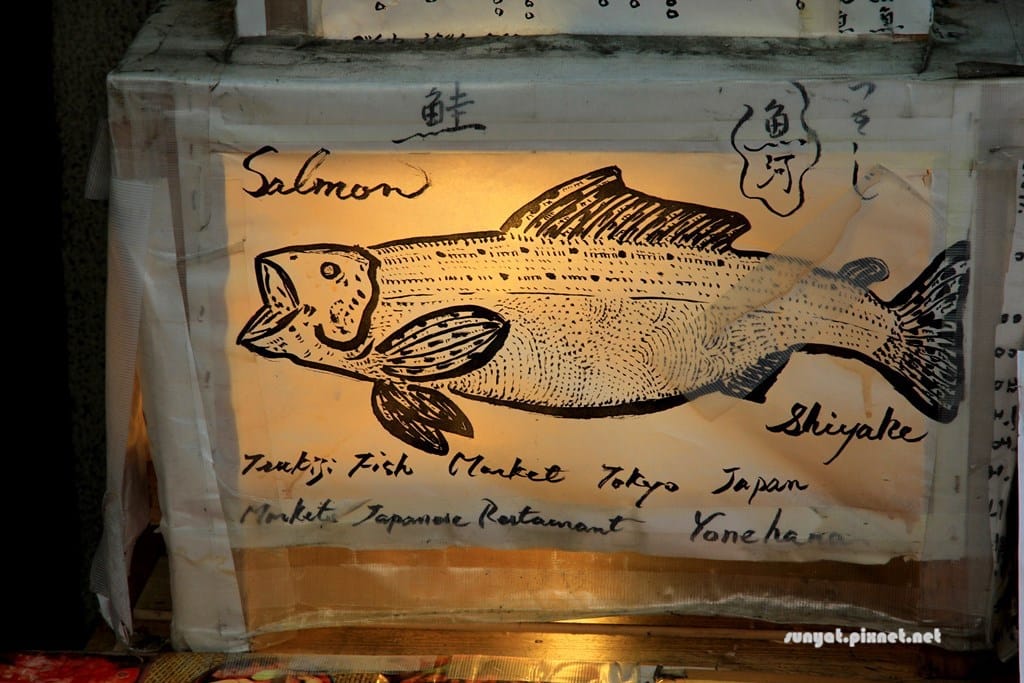 鮭
魚河
Salmon
Shiyake
Tsukiji Fish Market Tokyo Japan
Markets Japanese Restaurant Yonehana
sunyat.pixnet.net